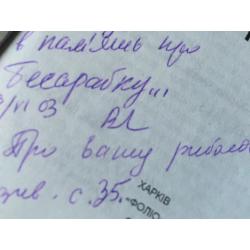 в пам'ять про
Бесарабку...
/VI 03
Про вашу риболо
див. с. 35.
ХАРКІВ
«ФОЛІО